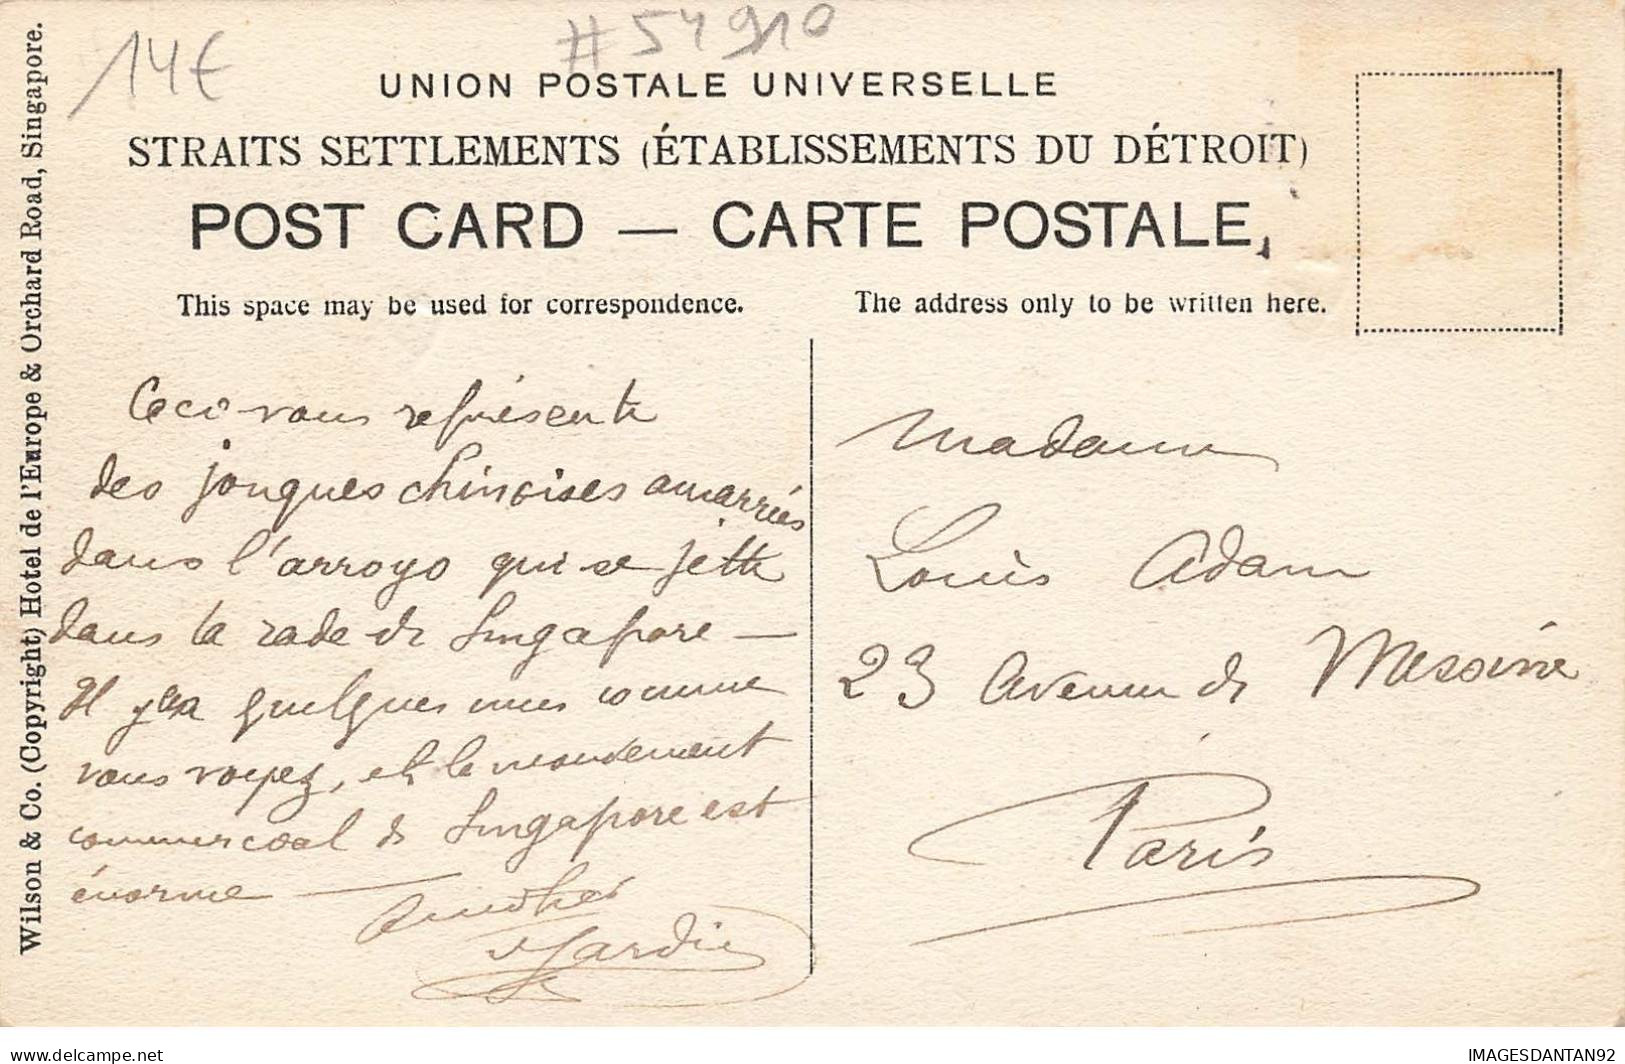 14€
#54910
UNION POSTALE UNIVERSELLE
STRAITS SETTLEMENTS (ÉTABLISSEMENTS DU DÉTROIT)
POST CARD — CARTE POSTALE
This space may be used for correspondence.
The address only to be written here.
Wilson & Co. (Copyright) Hotel de l'Europe & Orchard Road, Singapore.
Ceci vous représente
des jonques chinoises amarrées
dans l'arroyo qui se jette
dans la rade de Singapore —
Il y en a quelques unes comme
vous voyez, et le mouvement
commercial de Singapore est
énorme —
Madame
Louis Adam
23 Avenue de Messine
Paris
delcampe.net
IMAGESDANTAN92